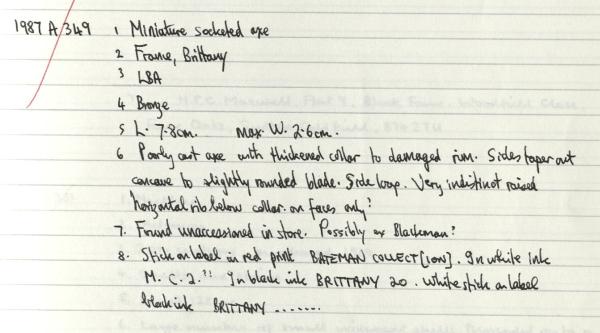 1987 A 349 1 Miniature socketed axe
2 France, Brittany
3 LBA
4 Bronze
5 L. 7.8cm. max. W. 2.6cm.
6 Poorly cast axe with thickened collar to damaged rim. Sides taper out
concave to slightly rounded blade. Side loop. Very indistinct raised
horizontal rib below collar on faces only?
7. Found unaccessioned in store. Possibly ex Blackman?
8. Stick on label in red print BATEMAN COLLECT[ION]. In white ink
M. C. 2. In black ink BRITTANY 20. White stick on label
black ink BRITTANY .......